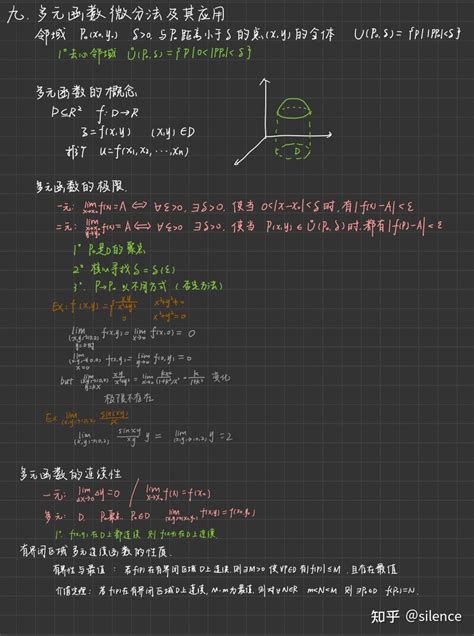 九. 多元函数微分法及其应用
邻域 P₀(x₀, y₀) δ>0. 与P₀距离小于δ的点(x, y)的全体 U(P₀, δ) = {P||PP₀|<δ}
1° 去心邻域 Ů(P₀, δ) = {P|0<|PP₀|<δ}
多元函数的概念
D⊆R² f: D→R
z=f(x,y) (x,y)∈D
推广 u=f(x₁, x₂, ···, xₙ)
D
多元函数的极限.
一元: lim x→x₀ f(x)=A ⇔ ∀ε>0, ∃δ>0, 使当 0<|x-x₀|<δ时, 有|f(x)-A|<ε
二元: lim x→x₀ y→y₀ f(x)=A ⇔ ∀ε>0 ∃δ>0, 使当 P(x,y)∈Ů(P₀, δ)时, 都有|f(P)-A|<ε
1° P₀是D的聚点
2° 核心寻找 δ=δ(ε)
3° P→P₀ 以不同方式
Ex: f(x,y)={ xy/(x²+y²) x²+y²≠0
0 x²+y²=0
lim (x,y)→(0,0) y=0 f(x,y)= lim x→0 f(x,0) = 0
lim (x,y)→(0,0) x=0 f(x,y)= lim y→0 f(0,y) = 0
but lim (x,y)→(0,0) y=kx xy/(x²+y²) = lim x→0 kx²/(1+k²)x² = k/(1+k²) 变化
极限不存在
Ex lim (x,y)→(0,2) sin(xy)/x
lim (x,y)→(0,2) sinxy/xy y = lim (x,y)→(0,2) y = 2
多元函数的连续性
一元: lim Δx→0 Δy=0 / lim x→x₀ f(x) = f(x₀)
多元: D. P₀聚点. P₀∈D lim (x,y)→(x₀,y₀) f(x,y) = f(x₀,y₀)
1° f(x,y)在D上都连续 则f(x,y)在D上连续.
有界闭区域 多元连续函数的性质.
有界性与最值: 若f(P)在有界闭区域D上连续, 则∃M>0 使∀P∈D 有|f(P)|≤M. 且存在最值
介值定理: 若f(P)在有界闭区域D上连续, M.m为最值, 则对∀N∈R m<N<M 则∃P₀∈D f(P₀)=N.
知乎 @silence